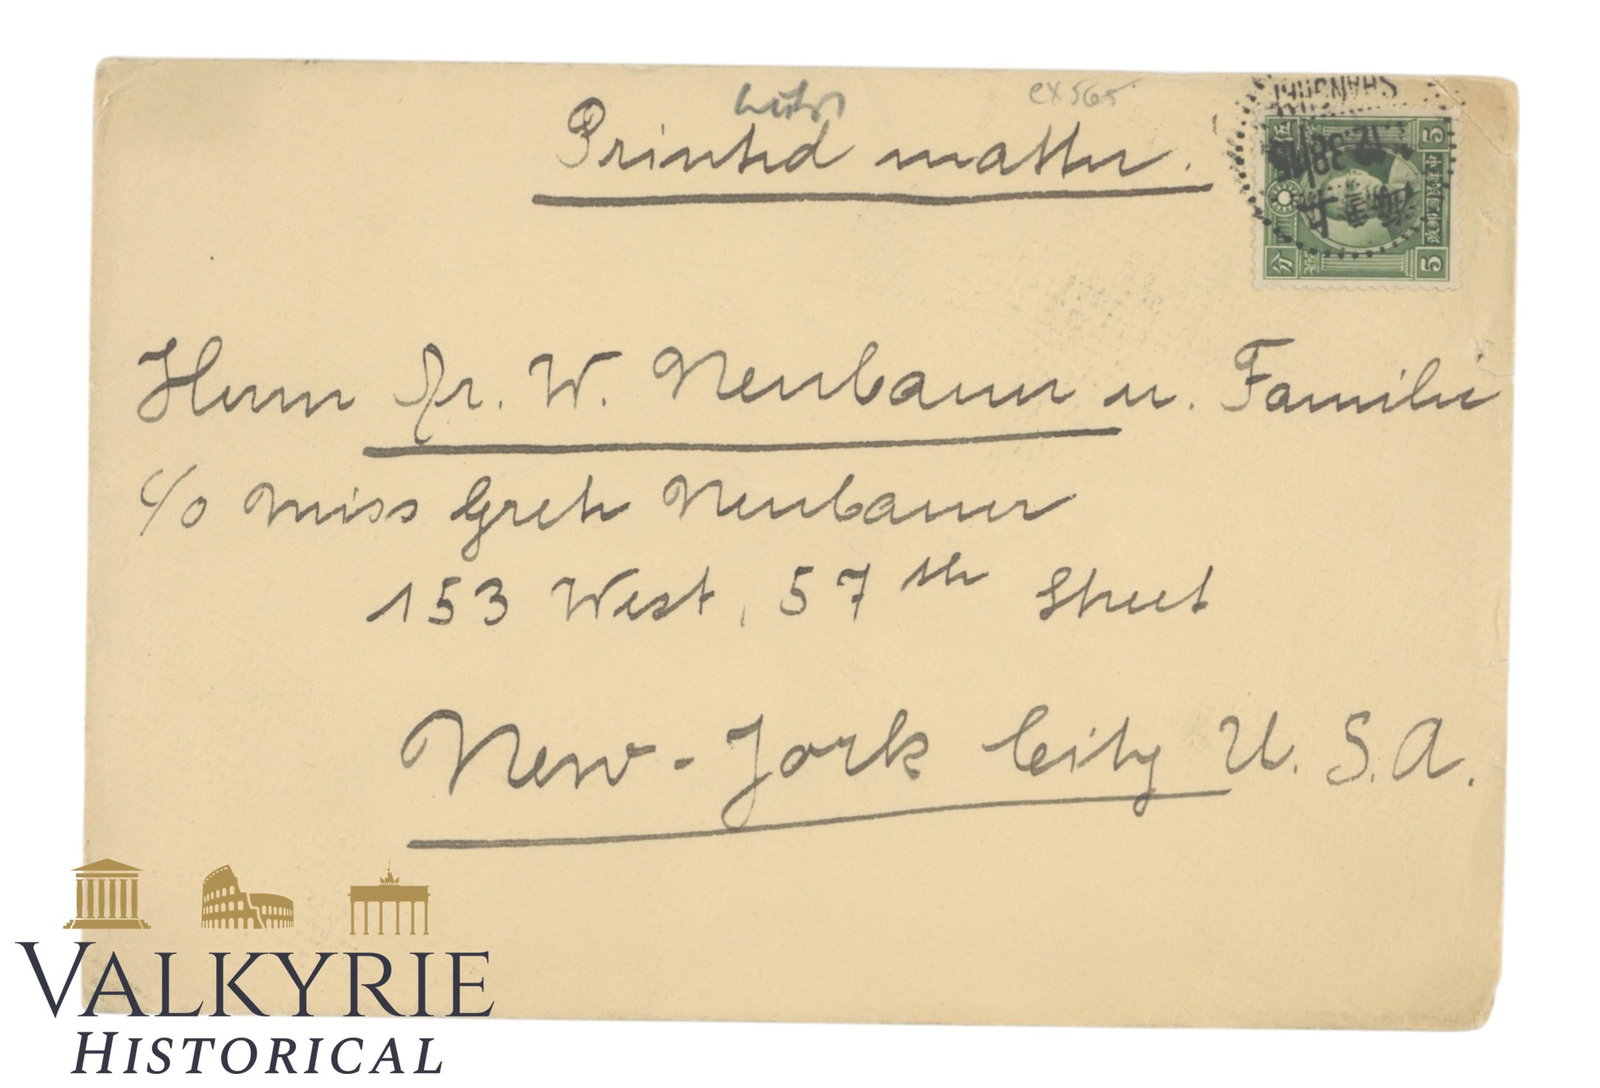 ex 565
Printed matter.
SHANGHAI
12.38
伍
分
5
5
中華民國郵政
Herrn Dr. W. Neubauer u. Familie
c/o Miss Grete Neubauer
153 West, 57th Street
New-York City U.S.A.
VALKYRIE
HISTORICAL